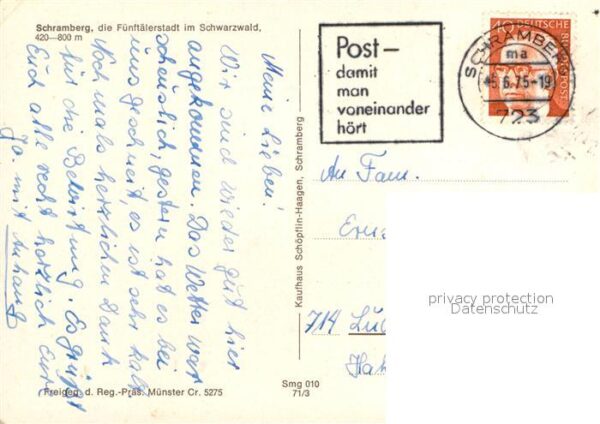 Schramberg, die Fünftälerstadt im Schwarzwald,
420—800 m
Meine Lieben!
Wir sind wieder gut hier
angekommen. Das Wetter war
scheuslich, gestern hat es bei
uns geschneit, es ist sehr kalt.
Noch mals herzlichen Dank
für die Bewirtung. Es grüßt
Euch alle recht herzlich Eure
Jo. mit Anhang
Freigeg. d. Reg.-Präs. Münster Cr. 5275
Kaufhaus Schöpflin-Haagen, Schramberg
Smg 010
71/3
Post —
damit
man
voneinander
hört
40 DEUTSCHE
BUNDESPOST
SCHRAMBERG
ma
-5.6.75-19
723
An Fam.
714
privacy protection
Datenschutz